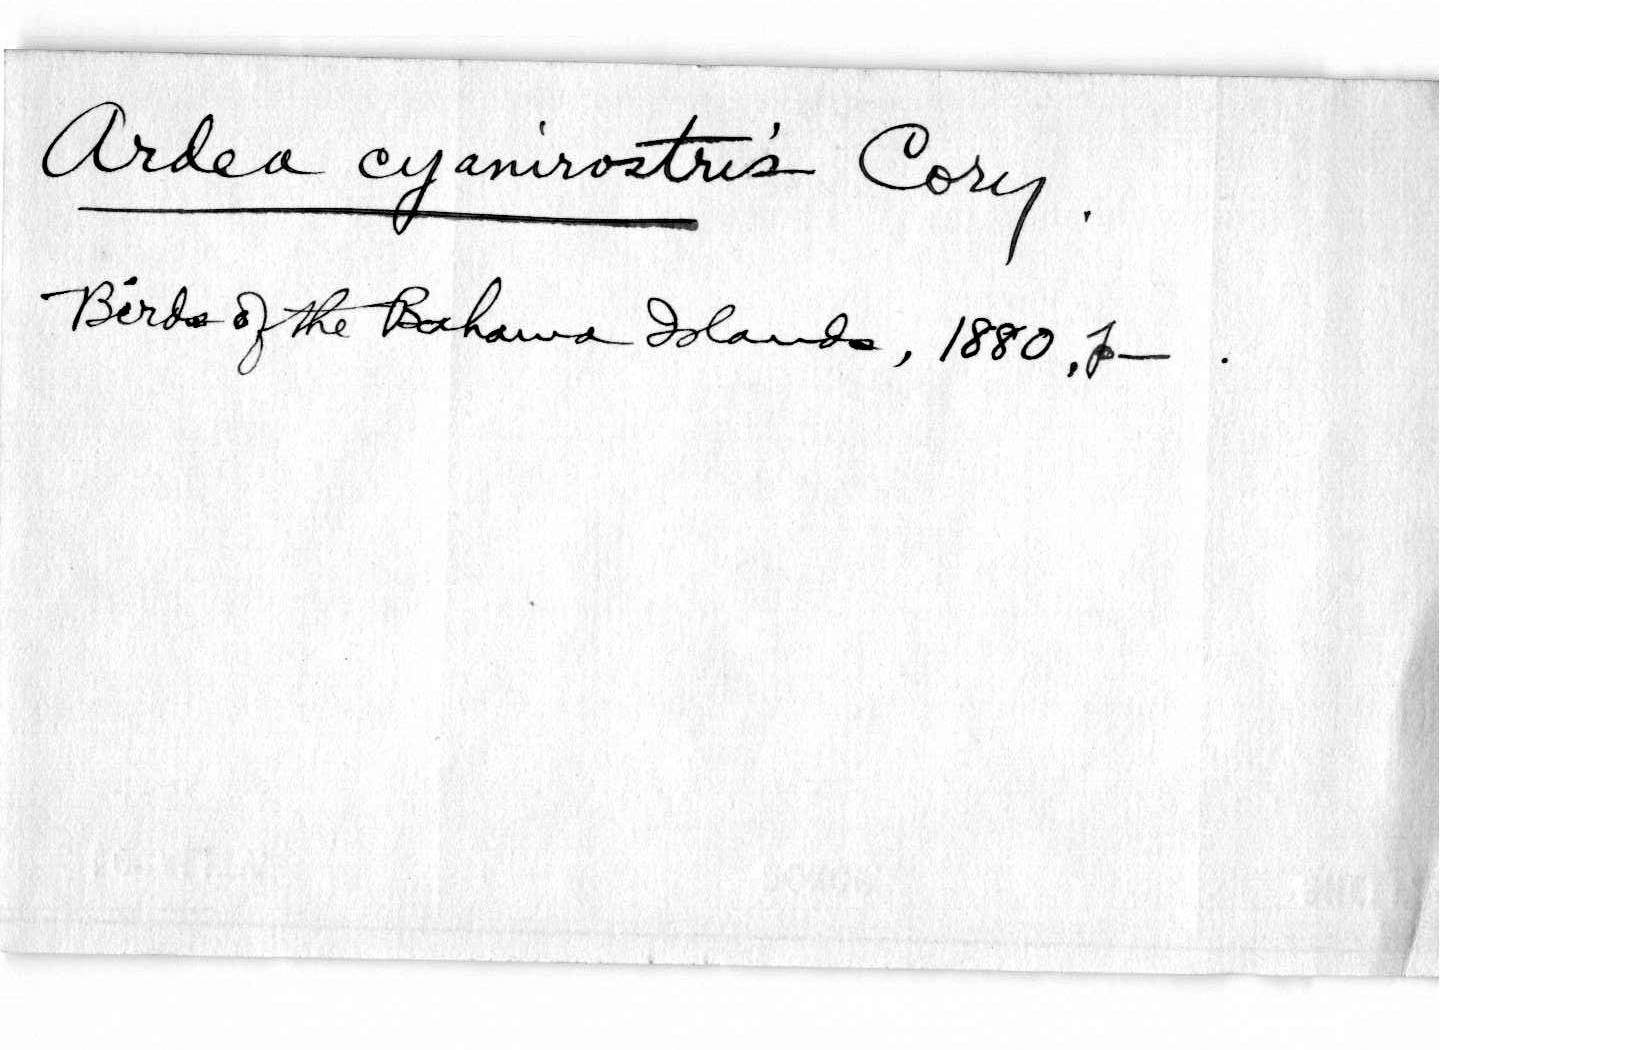 Ardea cyanirostris Cory.
Birds of the Bahama Islands, 1880, p— .